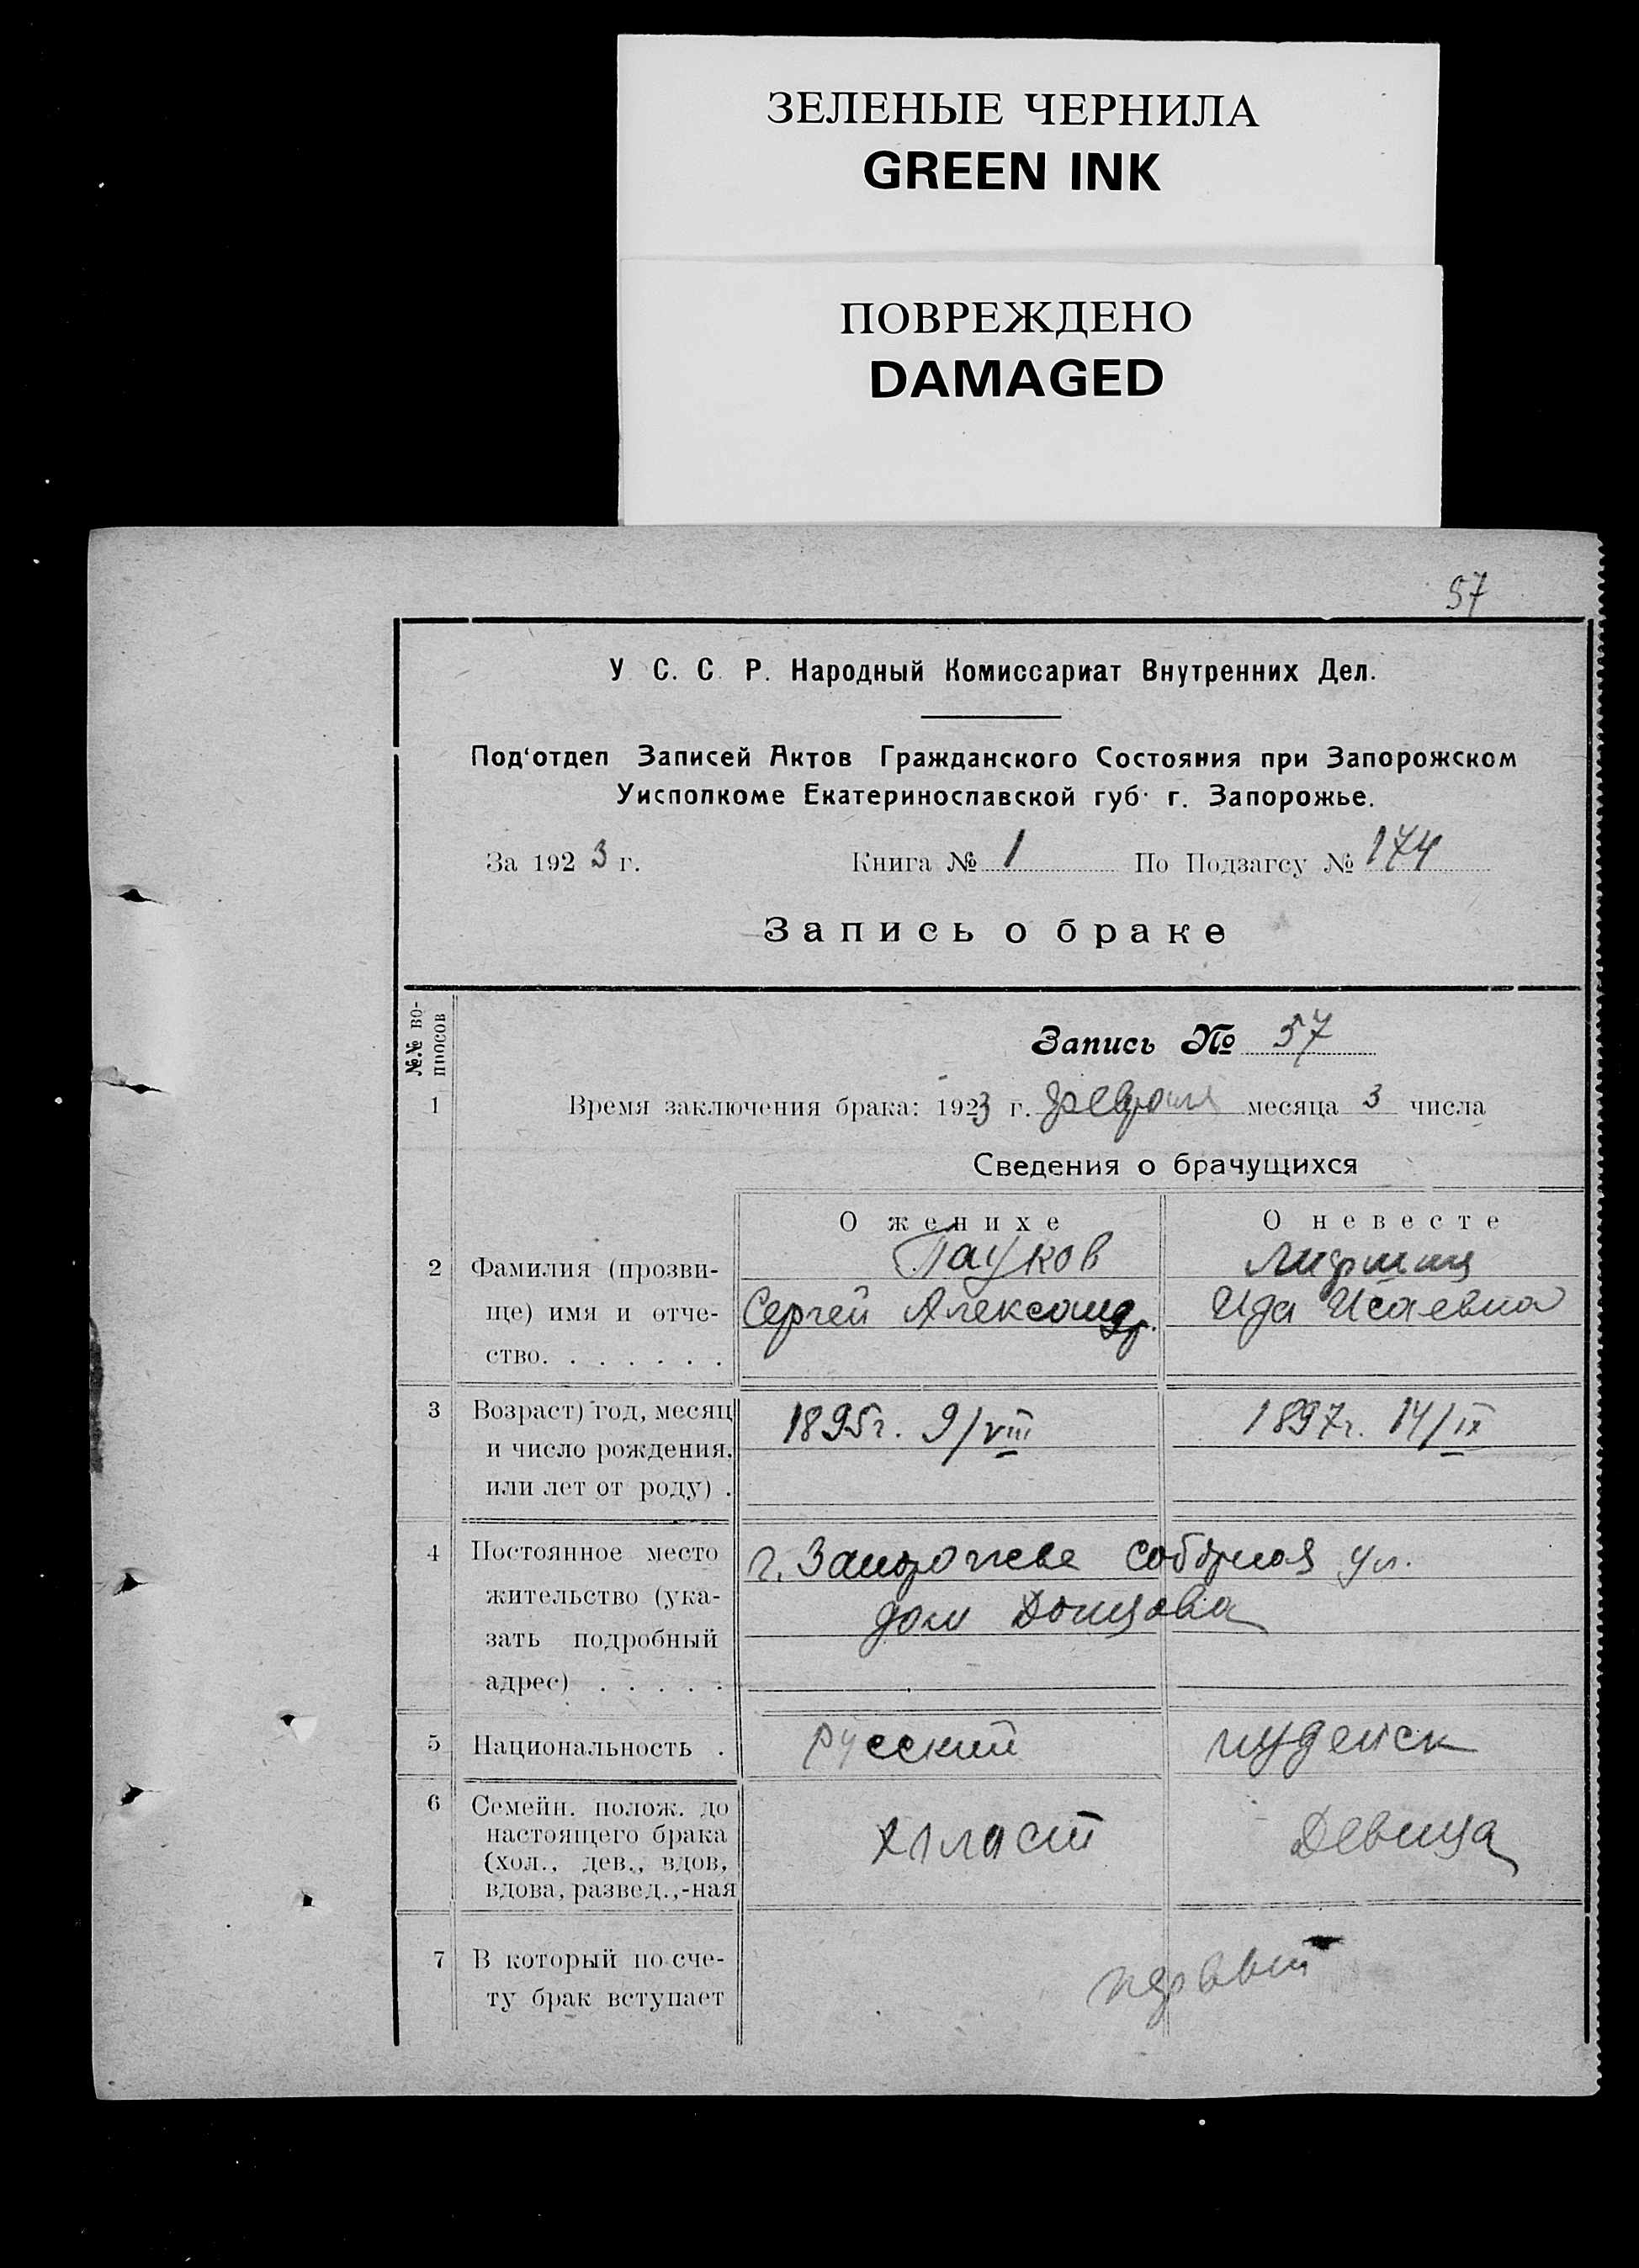 ЗЕЛЕНЫЕ ЧЕРНИЛА
GREEN INK
ПОВРЕЖДЕНО
DAMAGED
57
У С. С Р. Народный Комиссариат Внутренних Дел.
Под‘отдел Записей Актов Гражданского Состояния при Запорожском
Уисполкоме Екатеринославской губ. г. Запорожье.
За 1923 г. Книга № 1 По Подзагсу № 174
Запись о браке
№.№ во-
просов
Запись № 57
1 Время заключения брака: 1923 г. февраля месяца 3 числа
Сведения о брачущихся
О женихе О невесте
2 Фамилия (прозви- Пауков
ще) имя и отче- Сергей Александр. Ида Исаевна
ство. . . . . . .
3 Возраст) год, месяц 1895г. 9/VIII 1897г. 14/IX
и число рождения,
или лет от роду) .
4 Постоянное место г. Запорожье Соборная ул.
жительство (ука- дом Донцова
зать подробный
адрес) . . . . .
5 Национальность . русский иудейск
6 Семейн. полож. до
настоящего брака
(хол., дев., вдов, холост Девица
вдова, развед.,-ная
7 В который по сче- первый
ту брак вступает